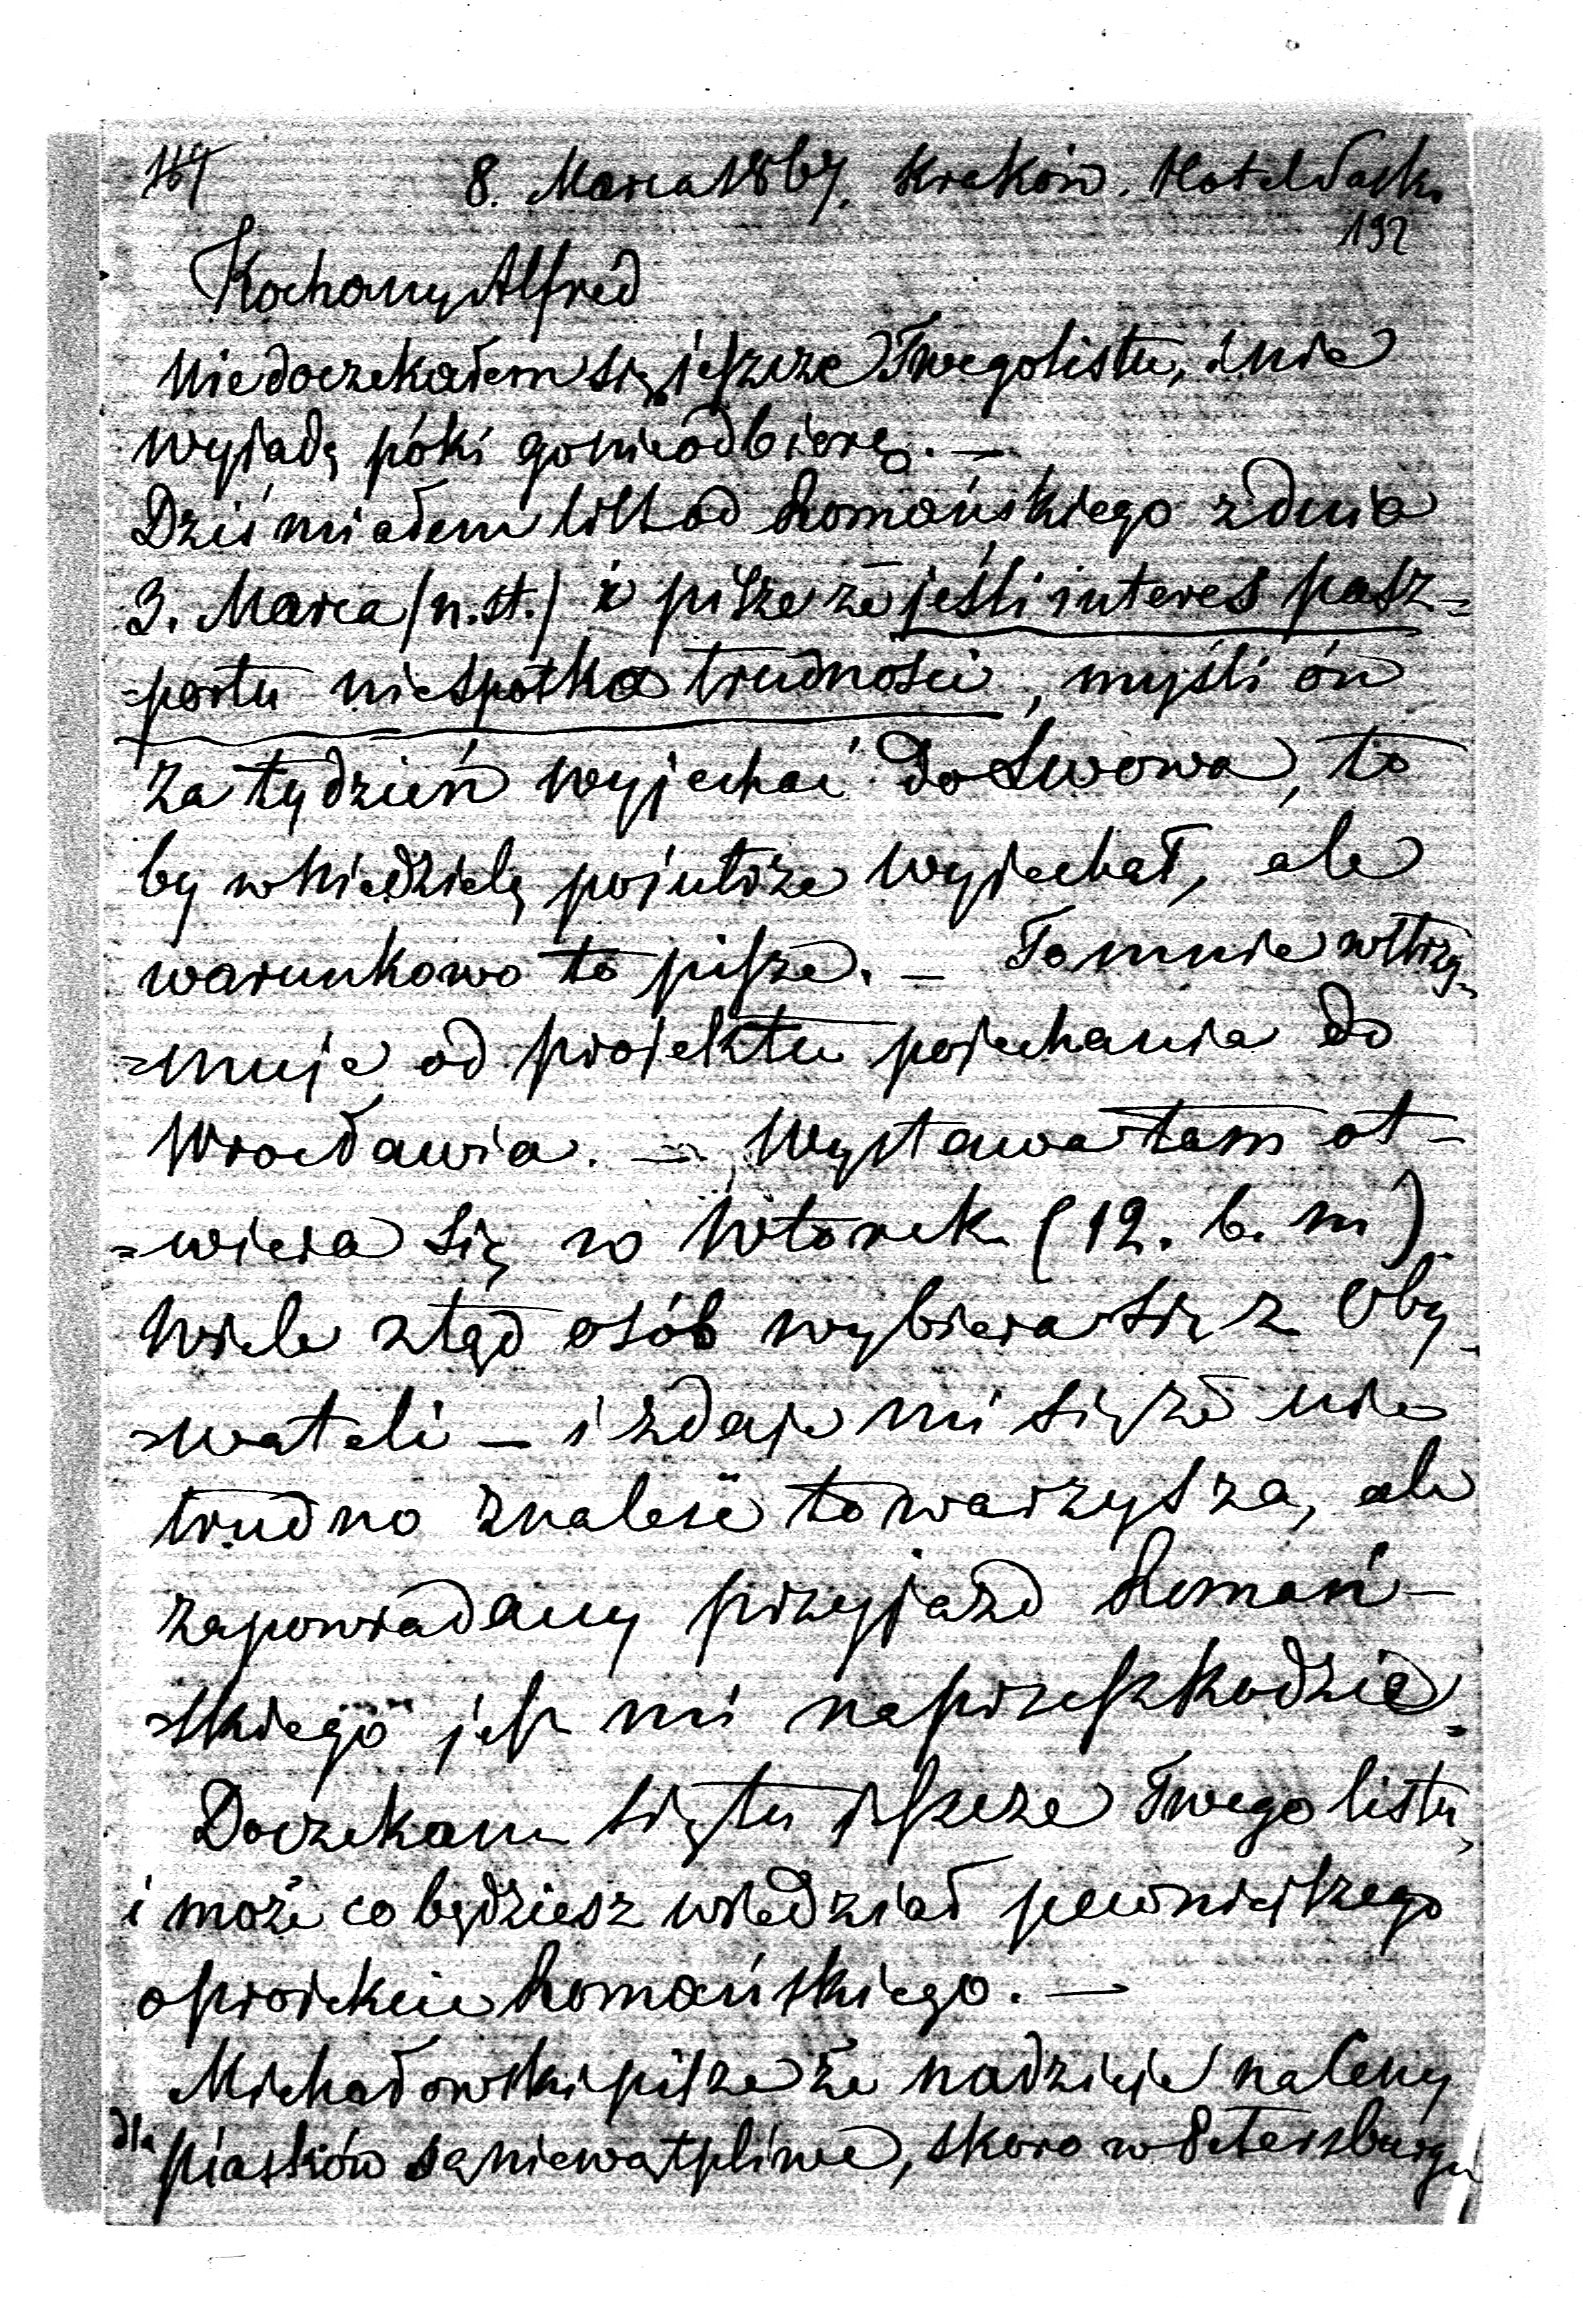 8. Marca 1867. Kraków. Hotel Sask.
192
Kochany Alfred
Niedoczekałem się jeszcze Twego listu, i nie
wyjadę póki go nie odbiorę. —
Dziś miałem list od Łomańskiego z dnia
3. Marca (n. st.) i pisze że jeśli interes pasz=
=portu nie spotka trudności, myśli on
za tydzień wyjechać do Lwowa, to
by w Niedzielę pojutrze wyjechał, ale
warunkowo to pisze. — To mnie wstrzy=
=muje od projektu pojechania do
Wrocławia. — Wystawa tam ot-
=wiera się w Wtorek (12. b. m)
Wiele ztąd osób wybiera się z Oby-
=wateli — i zdaje mi się że nie
trudno znaleść towarzysza, ale
zapowiadany przyjazd Łomań-
=skiego jest mi na przeszkodzie.
Doczekam się tu jeszcze Twego listu,
i może co będziesz wiedział pewniejszego
o projekcie Łomańskiego. —
Michałowski pisze że nadzieje na Ceny
dla piasków są niewątpliwe, skoro w Petersburgu